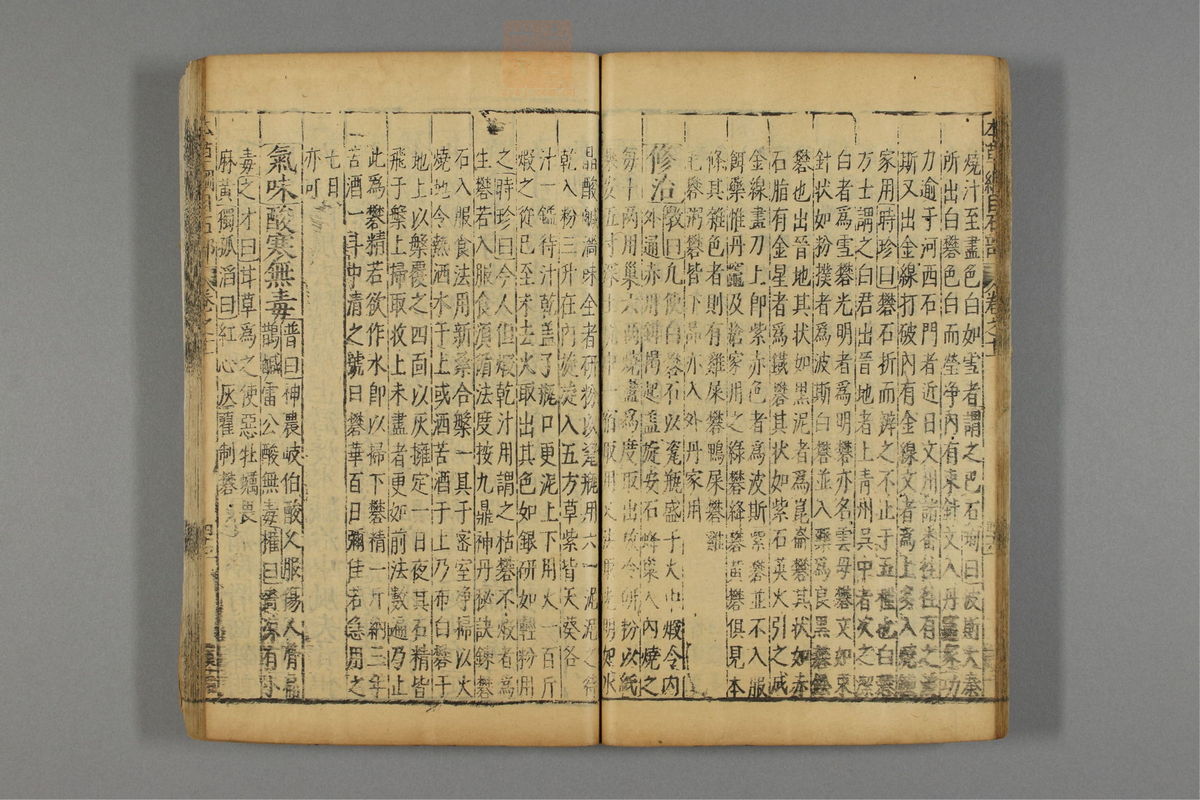 燒汁至盡色白如雪者謂之巴石珣曰波斯大秦
所出白礬色白而瑩淨內有束針文入丹竈家功
力逾于河西石門者近日文州諸番往往有之
斯又出金線打破內有金線文者爲上多入燒
家用時珍曰礬石折而辨之不止于五種也白礬
方士謂之白君出晉地者上青州吳中者次之潔
白者爲雪礬光明者爲明礬亦名雲母礬文如束
針狀如粉撲者爲波斯白礬並入藥爲良黑礬鉛
礬也出晉地其狀如黑泥者爲崑崙礬其狀如赤
石脂有金星者爲鐵礬其狀如紫石英火引之成
金線畫刀上卽紫赤色者爲波斯紫礬並不入服
餌藥惟丹竈及瘡家用之綠礬絳礬黃礬俱見本
條其雜色者則有雞屎礬鴨屎礬雞
毛礬粥礬皆下品亦入外丹家用
修治斅曰凡使白礬石以瓷瓶盛于火中煅令內
外通赤用鉗揭起蓋旋安石蜂窠入內燒之
每十兩用窠六兩燒盡爲度取出放冷研粉以紙
裹安五寸深土坑中一宿取用又法取光明如水
晶酸鹹澀味全者研粉以瓷瓶用六一泥泥之待
乾入粉三升在內旋旋入五方草紫背天葵各
汁一鎰待汁乾蓋了瓶口更泥上下用火一百斤
煅之從巳至未去火取出其色如銀研如輕粉用
之時珍曰今人但煅乾汁用謂之枯礬不煅者爲
生礬若入服食須循法度按九鼎神丹祕訣鍊礬
石入服食法用新桑合槃一具于密室淨掃以火
燒地令熱洒水于上或洒苦酒于上乃布白礬于
地上以槃覆之四面以灰擁定一日夜其石精皆
飛于槃上掃取收上未盡者更如前法數遍乃止
此爲礬精若欲作水卽以掃下礬精一斤納三年
苦酒一斗中清之號曰礬華百日彌佳若急用之
七日
亦可
氣味酸寒無毒普曰神農岐伯酸久服傷人骨扁
鵲鹹雷公酸無毒權曰澀涼有小
毒之才曰甘草爲之使惡牡蠣畏
麻黃獨孤滔曰紅心灰藋制礬